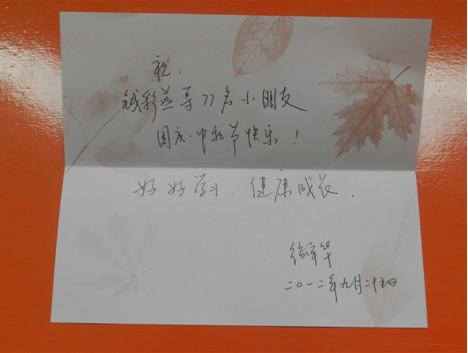 祝:
钱彩燕等77名小朋友
国庆·中秋节快乐!
好好学习、健康成长.
二〇一二年九月二十五日